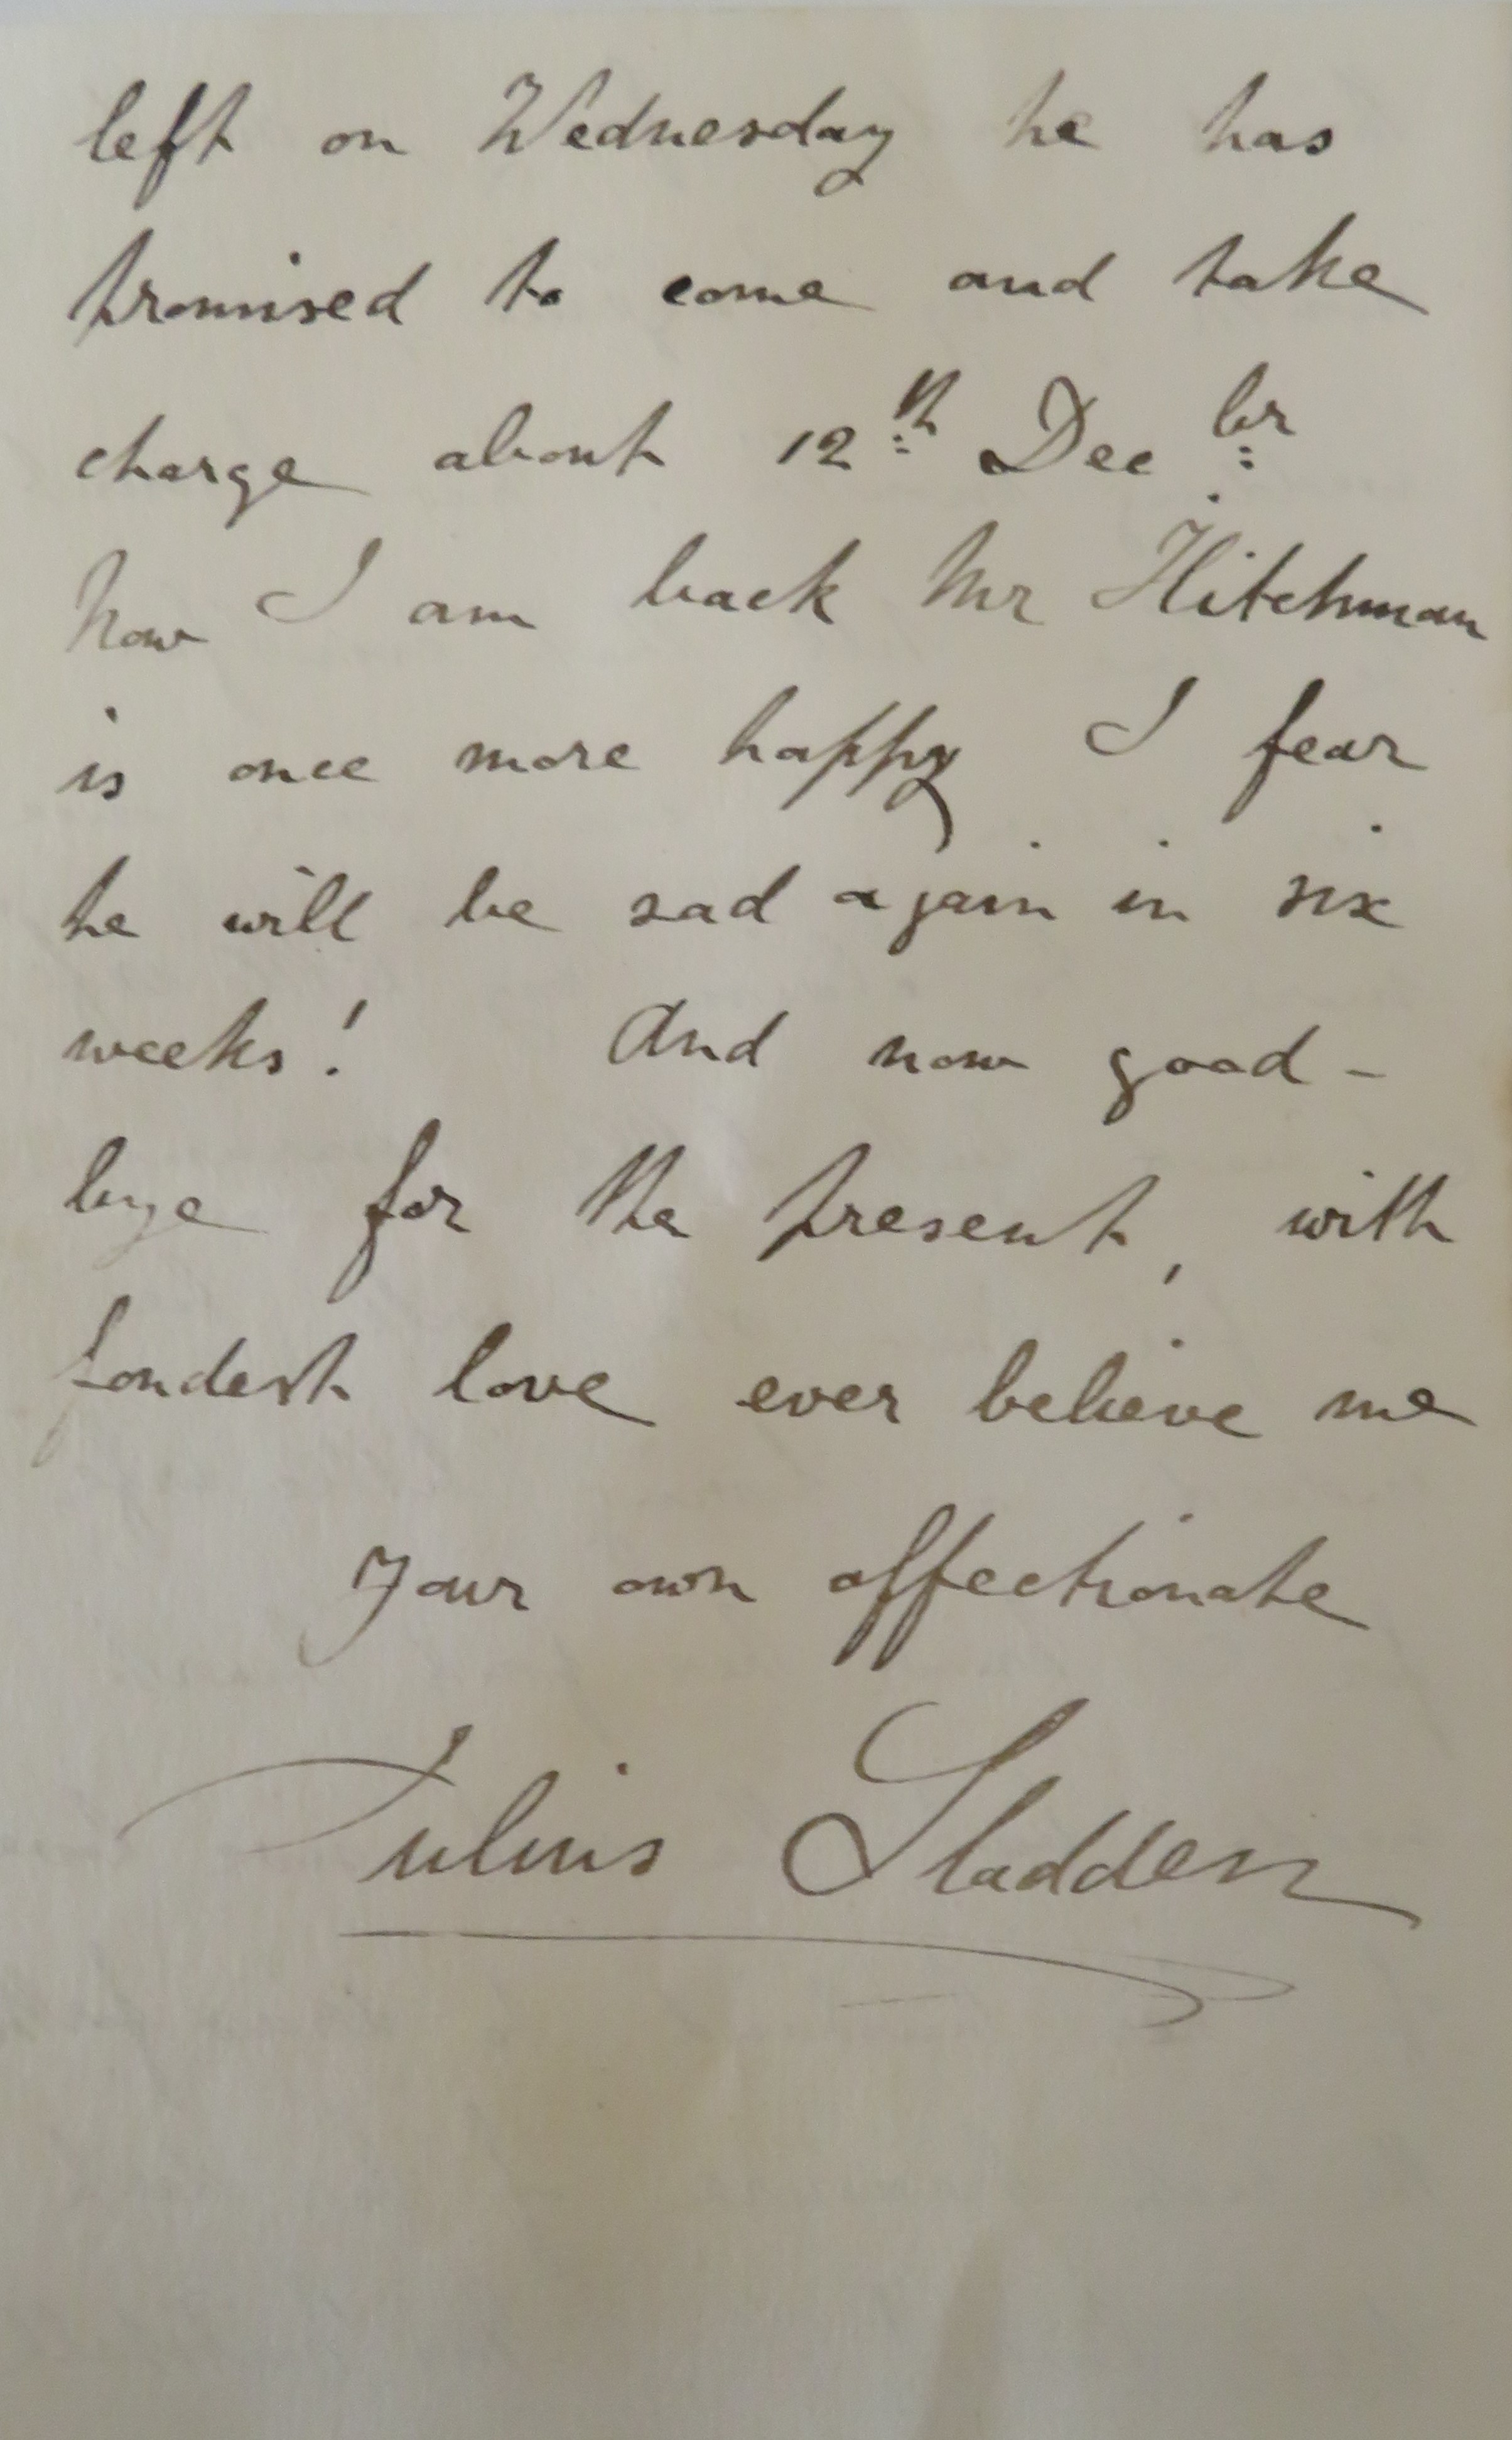 left on Wednesday he has
promised to come and take
charge about 12th Decbr
Now I am back Mr Hitchman
is once more happy I fear
he will be sad again in six
weeks! And now good-
bye for the present, with
fondest love ever believe me
Your own affectionate
Julius Sladden